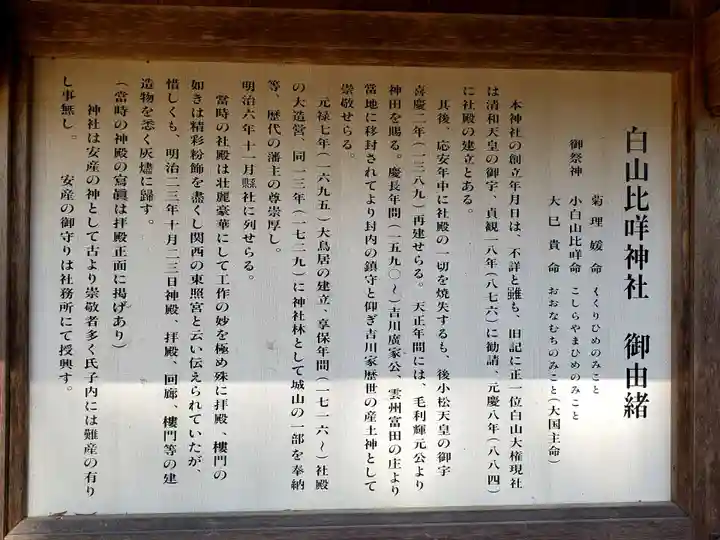 白山比咩神社　御由緒
御祭神
菊理媛命　くくりひめのみこと
小白山比咩命　こしらやまひめのみこと
大巳貴命　おおなむちのみこと(大国主命)
本神社の創立年月日は、不詳と雖も、旧記に正一位白山大権現社
は清和天皇の御宇、貞観一八年(八七六)に勧請、元慶八年(八八四)
に社殿の建立とある。
其後、応安年中に社殿の一切を焼失するも、後小松天皇の御宇
喜慶二年(一三八九)再建せらる。天正年間には、毛利輝元公より
神田を賜る。慶長年間(一五九〇〜)吉川廣家公、雲州富田の庄より
當地に移封されてより封内の鎮守と仰ぎ吉川家歴世の産土神として
崇敬せらる。
元禄七年(一六九五)大鳥居の建立、享保年間(一七一六〜)社殿
の大造営、同一三年(一七二九)に神社林として城山の一部を奉納
等、歴代の藩主の尊崇厚し。
明治六年十一月縣社に列せらる。
當時の社殿は壮麗豪華にして工作の妙を極め殊に拝殿、樓門の
如きは精彩粉飾を盡くし関西の東照宮と云い伝えられていたが、
惜しくも、明治二三年十月二三日神殿、拝殿、回廊、樓門等の建
造物を悉く灰燼に歸す。
(當時の神殿の寫眞は拝殿正面に掲げあり)
神社は安産の神として古より崇敬者多く氏子内には難産の有り
し事無し。　安産の御守りは社務所にて授興す。